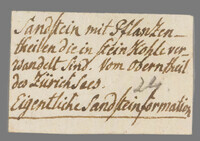 Sandstein mit Pflanzen-
theilen die in Stein Kohle ver-
wandelt sind. Vom obern theil
des Zürich Sees.
24
Eigentliche Sandsteinformation